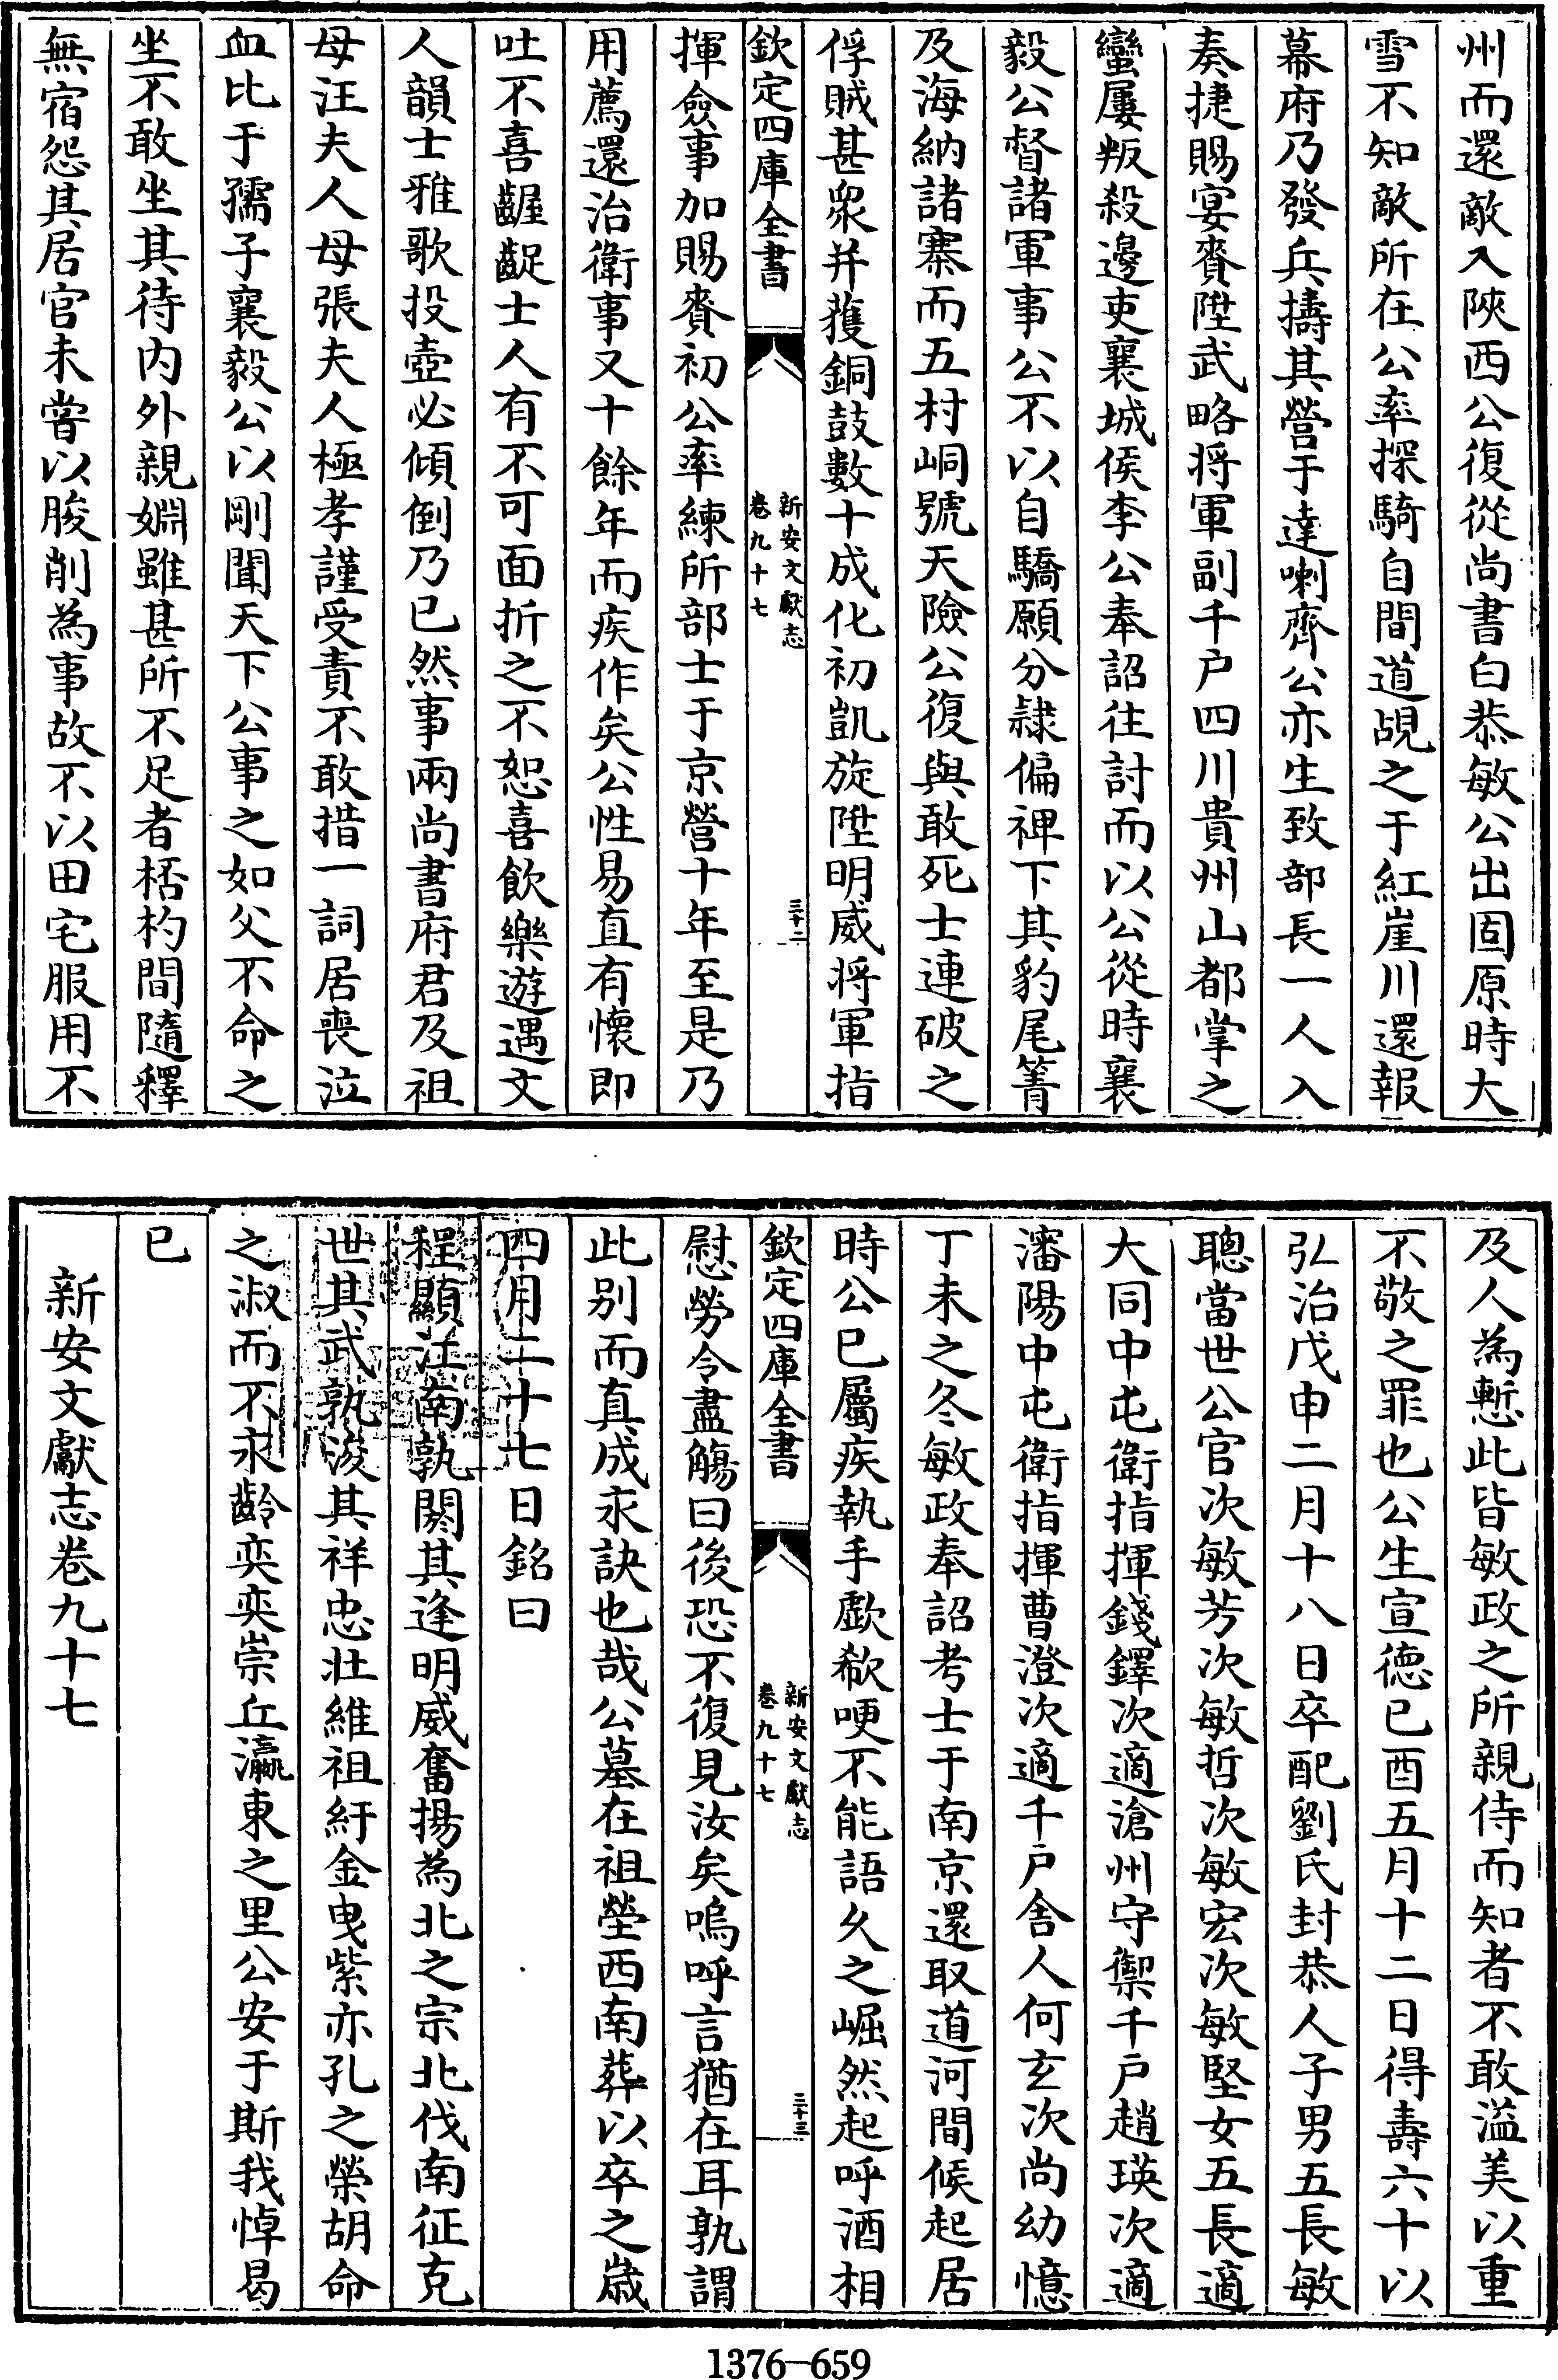 州而還敵入陜西公復從尚書白恭敏公出固原時大
雪不知敵所在公率探騎自間道覘之于紅崖川還報
幕府乃發兵擣其營于達喇齊公亦生致部長一人入
奏捷賜宴賚陞武略將軍副千户四川貴州山都掌之
蠻屢叛殺邊吏襄城侯李公奉詔往討而以公從時襄
毅公督諸軍事公不以自驕願分隷偏裨下其豹尾箐
及海納諸寨而五村峒號天險公復與敢死士連破之
俘賊甚衆并獲銅鼓數十成化初凱旋陞明威將軍指
欽定四庫全書
新安文獻志
卷九十七
三十二
揮僉事加賜賚初公率練所部士于京營十年至是乃
用薦還治衛事又十餘年而疾作矣公性易直有懷即
吐不喜齷齪士人有不可面折之不恕喜飲樂遊遇文
人韻士雅歌投壺必傾倒乃已然事兩尚書府君及祖
母汪夫人母張夫人極孝謹受責不敢措一詞居喪泣
血比于孺子襄毅公以剛聞天下公事之如父不命之
坐不敢坐其待内外親婣雖甚所不足者桮杓間隨釋
無宿怨其居官未甞以朘削為事故不以田宅服用不
及人為慙此皆敏政之所親侍而知者不敢溢美以重
不敬之罪也公生宣德已酉五月十二日得壽六十以
弘治戊申二月十八日卒配劉氏封恭人子男五長敏
聰當世公官次敏芳次敏哲次敏宏次敏堅女五長適
大同中屯衛指揮錢鐸次適滄州守禦千户趙瑛次適
瀋陽中屯衛指揮曹澄次適千户舍人何玄次尚幼憶
丁未之冬敏政奉詔考士于南京還取道河間候起居
時公已屬疾執手歔欷哽不能語乆之崛然起呼酒相
欽定四庫全書
新安文獻志
卷九十七
三十三
慰勞令盡觴曰後恐不復見汝矣嗚呼言猶在耳孰謂
此别而真成永訣也哉公墓在祖塋西南葬以卒之歲
四月二十七日銘曰
程顯江南孰閼其逢明威奮揚為北之宗北伐南征克
世其武孰浚其祥忠壯維祖紆金曳紫亦孔之榮胡命
之淑而不永齡奕奕崇丘瀛東之里公安于斯我悼曷
已
新安文獻志卷九十七
1376-659